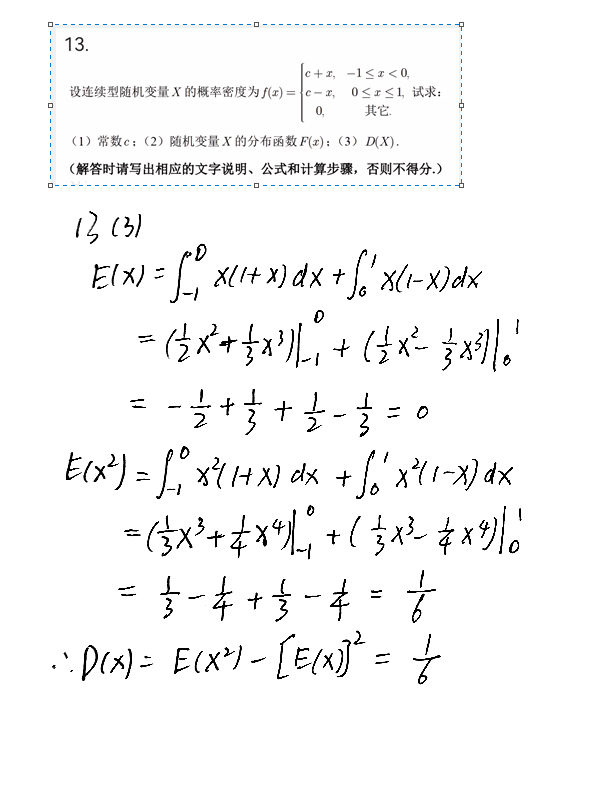 13.
设连续型随机变量 X 的概率密度为 f(x) = { c + x, −1 ≤ x < 0, c − x, 0 ≤ x ≤ 1, 0, 其它. 试求:
(1) 常数 c ; (2) 随机变量 X 的分布函数 F(x) ; (3) D(X) .
(解答时请写出相应的文字说明、公式和计算步骤，否则不得分.)
13 (3)
E(X) = ∫_{-1}^{0} x(1+x) dx + ∫_{0}^{1} x(1-x)dx
= (1/2 x² + 1/3 x³)|_{-1}^{0} + (1/2 x² - 1/3 x³)|_{0}^{1}
= - 1/2 + 1/3 + 1/2 - 1/3 = 0
E(x²) = ∫_{-1}^{0} x²(1+x) dx + ∫_{0}^{1} x²(1-x) dx
= (1/3 x³ + 1/4 x⁴)|_{-1}^{0} + (1/3 x³ - 1/4 x⁴)|_{0}^{1}
= 1/3 - 1/4 + 1/3 - 1/4 = 1/6
∴ D(x) = E(X²) - [E(X)]² = 1/6